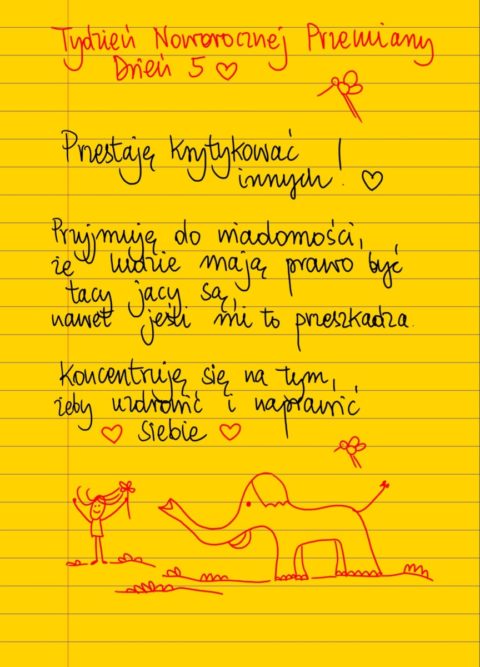 Tydzień Noworocznej Przemiany
Dzień 5
Przestaję krytykować
innych!
Przyjmuję do wiadomości,
że ludzie mają prawo być
tacy jacy są,
nawet jeśli mi to przeszkadza.
Koncentruję się na tym,
żeby uzdrowić i naprawić
siebie